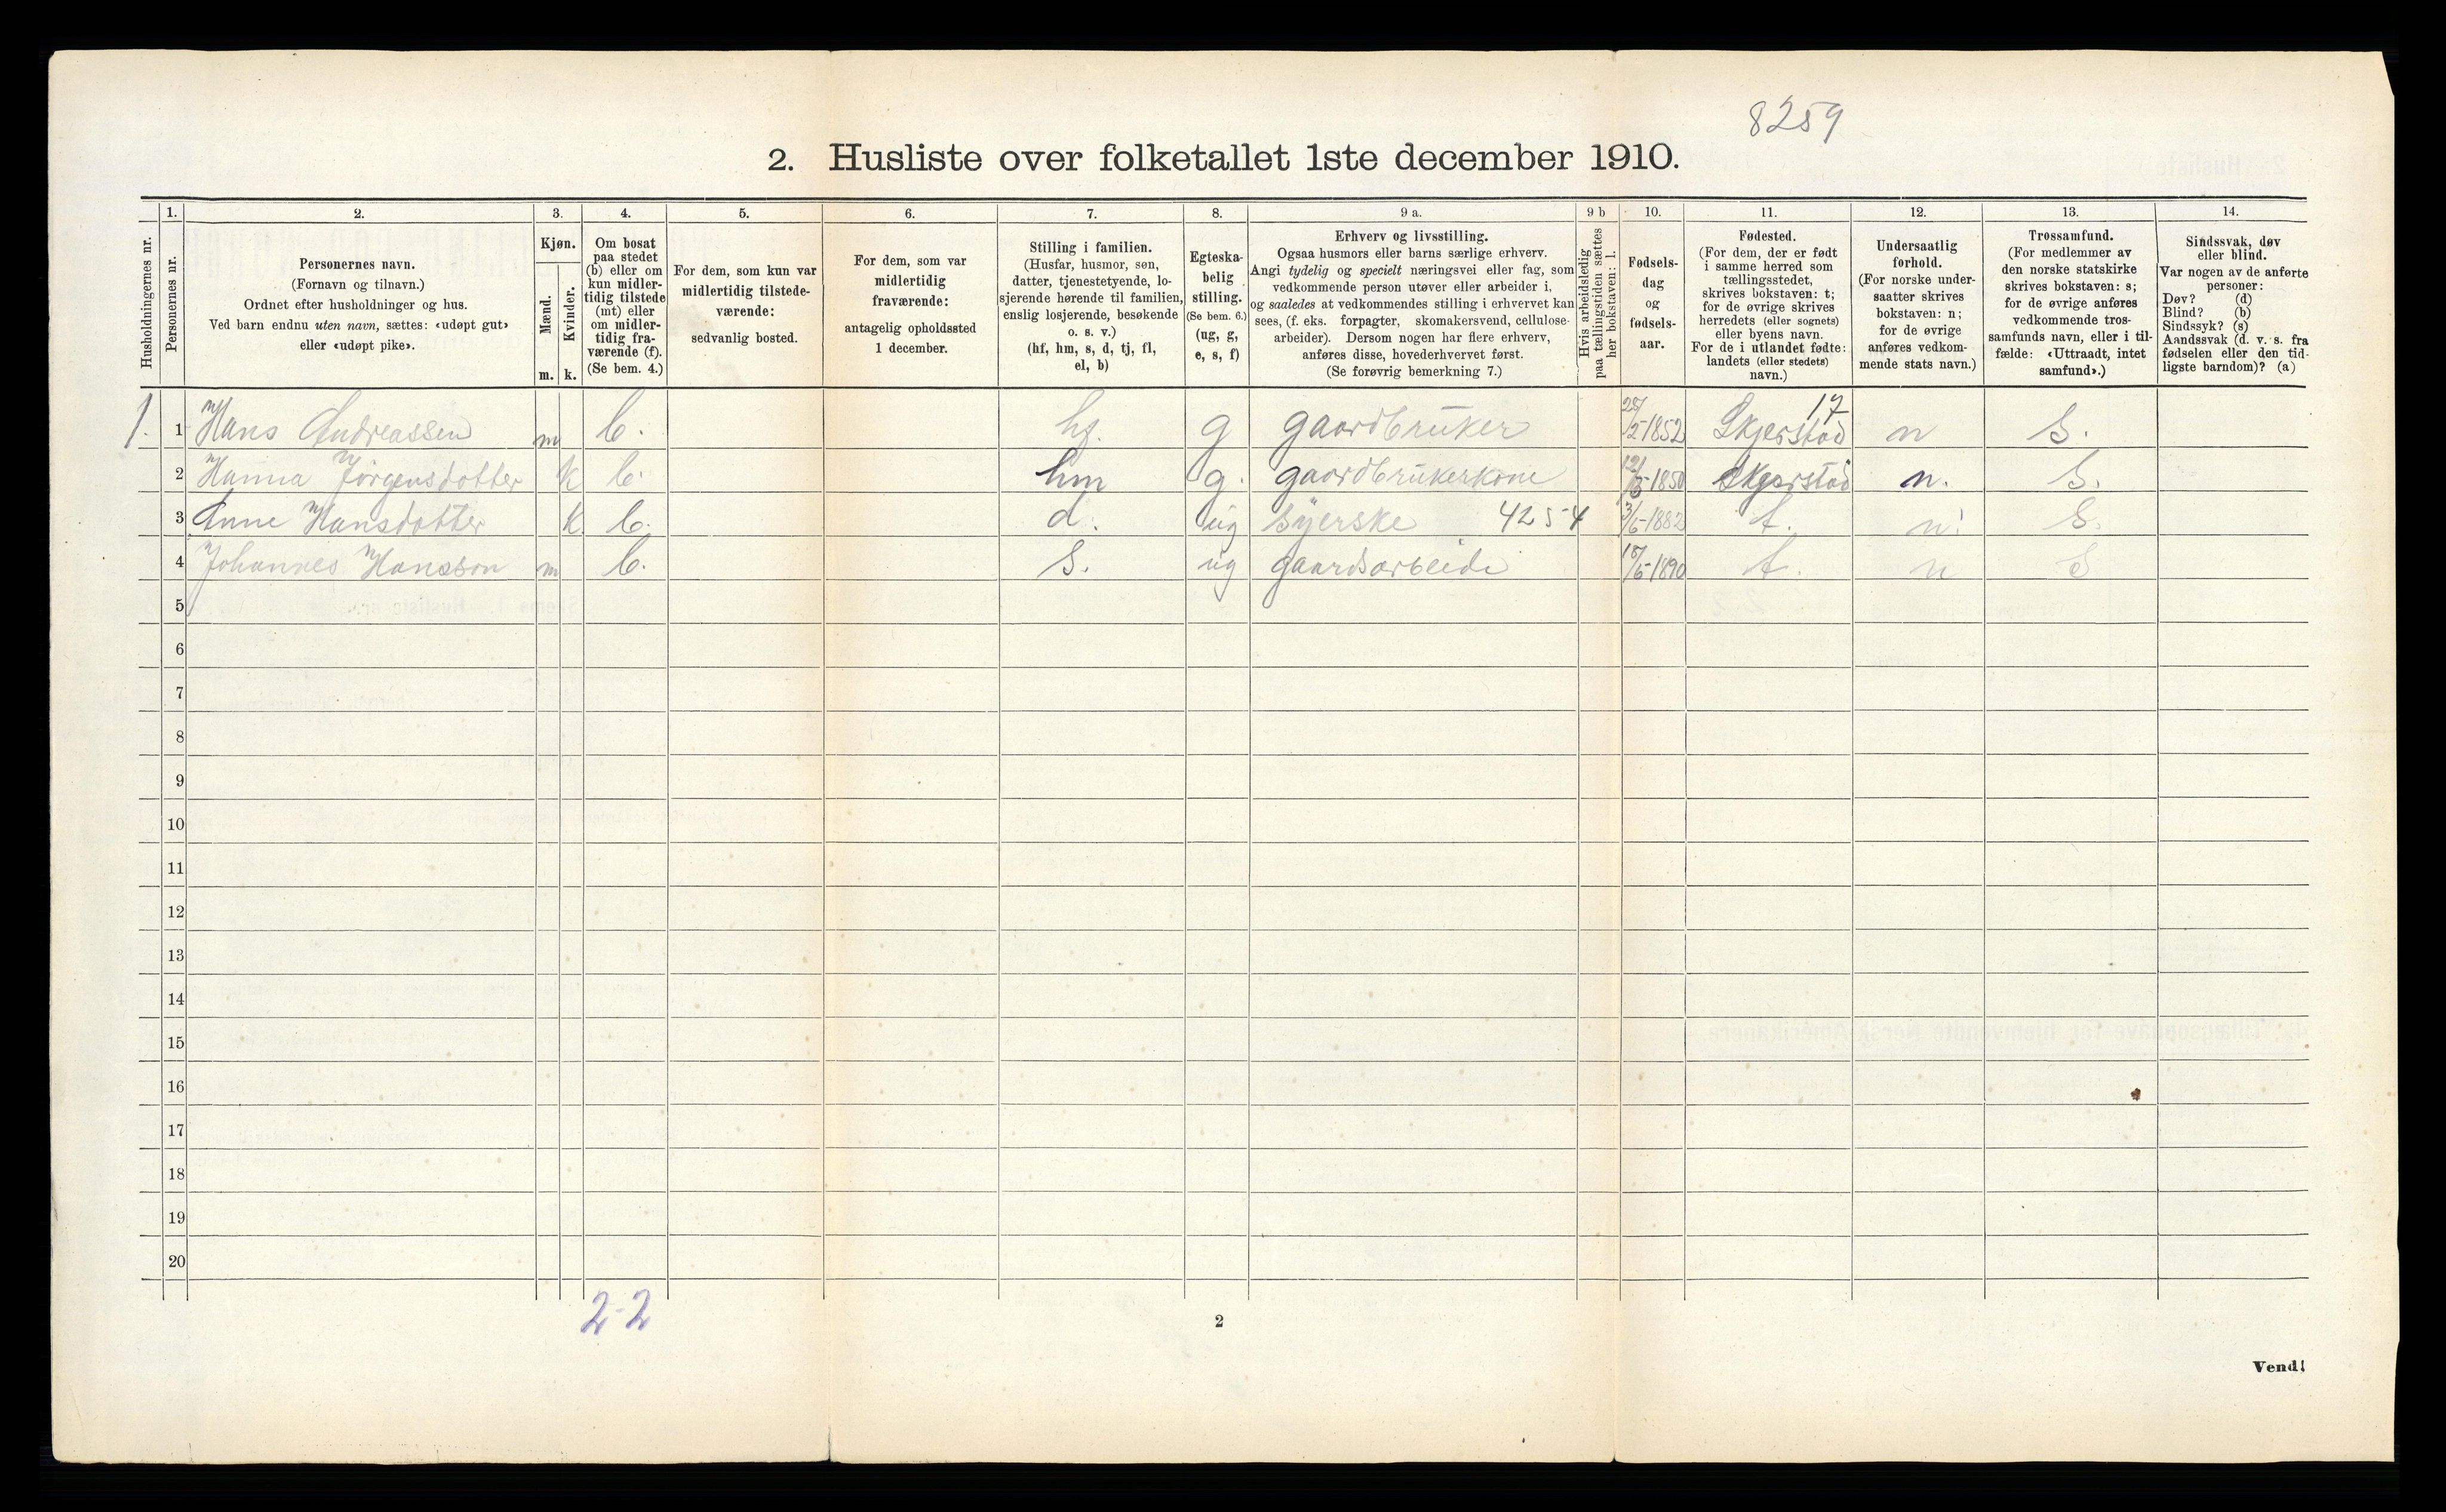 8259
2. Husliste over folketallet 1ste december 1910.
1. 2. 3. 4. 5. 6. 7. 8. 9 a. 9 b 10. 11. 12. 13. 14.
Husholdningernes nr.
Personernes nr.
Personernes navn.
(Fornavn og tilnavn.)
Ordnet efter husholdninger og hus.
Ved barn endnu uten navn, sættes: «udøpt gut»
eller «udøpt pike».
Kjøn.
Mænd.
Kvinder.
m. k.
Om bosat
paa stedet
(b) eller om
kun midler-
tidig tilstede
(mt) eller
om midler-
tidig fra-
værende (f).
(Se bem. 4.)
For dem, som kun var
midlertidig tilstede-
værende:
sedvanlig bosted.
For dem, som var
midlertidig
fraværende:
antagelig opholdssted
1 december.
Stilling i familien.
(Husfar, husmor, søn,
datter, tjenestetyende, lo-
sjerende hørende til familien,
enslig losjerende, besøkende
o. s. v.)
(hf, hm, s, d, tj, fl,
el, b)
Egteska-
belig
stilling.
(Se bem. 6.)
(ug, g,
e, s, f)
Erhverv og livsstilling.
Ogsaa husmors eller barns særlige erhverv.
Angi tydelig og specielt næringsvei eller fag, som
vedkommende person utøver eller arbeider i,
og saaledes at vedkommendes stilling i erhvervet kan
sees, (f. eks. forpagter, skomakersvend, cellulose-
arbeider). Dersom nogen har flere erhverv,
anføres disse, hovederhvervet først.
(Se forøvrig bemerkning 7.)
Hvis arbeidsledig
paa tællingstiden sættes
her bokstaven: l.
Fødsels-
dag
og
fødsels-
aar.
Fødested.
(For dem, der er født
i samme herred som
tællingsstedet,
skrives bokstaven: t;
for de øvrige skrives
herredets (eller sognets)
eller byens navn.
For de i utlandet fødte:
landets (eller stedets)
navn.)
Undersaatlig
forhold.
(For norske under-
saatter skrives
bokstaven: n;
for de øvrige
anføres vedkom-
mende stats navn.)
Trossamfund.
(For medlemmer av
den norske statskirke
skrives bokstaven: s;
for de øvrige anføres
vedkommende tros-
samfunds navn, eller i til-
fælde: «Uttraadt, intet
samfund».)
Sindssvak, døv
eller blind.
Var nogen av de anførte
personer:
Døv? (d)
Blind? (b)
Sindssyk? (s)
Aandssvak (d. v. s. fra
fødselen eller den tid-
ligste barndom)? (a)
17
1. 1 Hans Andreassen m b. hf. g gaardbruker 25/2-1852 Skjerstad n S.
2 Hanna Jörgensdotter k b. hm g. gaardbrukerkone 1850 Skjerstad n. S.
3 Anne Hansdotter k. b. d. ug syerske 4254 3/6-1882 t. n. S.
4 Johannes Hansson m b. S. ug gaardsarbeide 1890 t. n S
5
6
7
8
9
10
11
12
13
14
15
16
17
18
19
20
2-2
2
Vend!